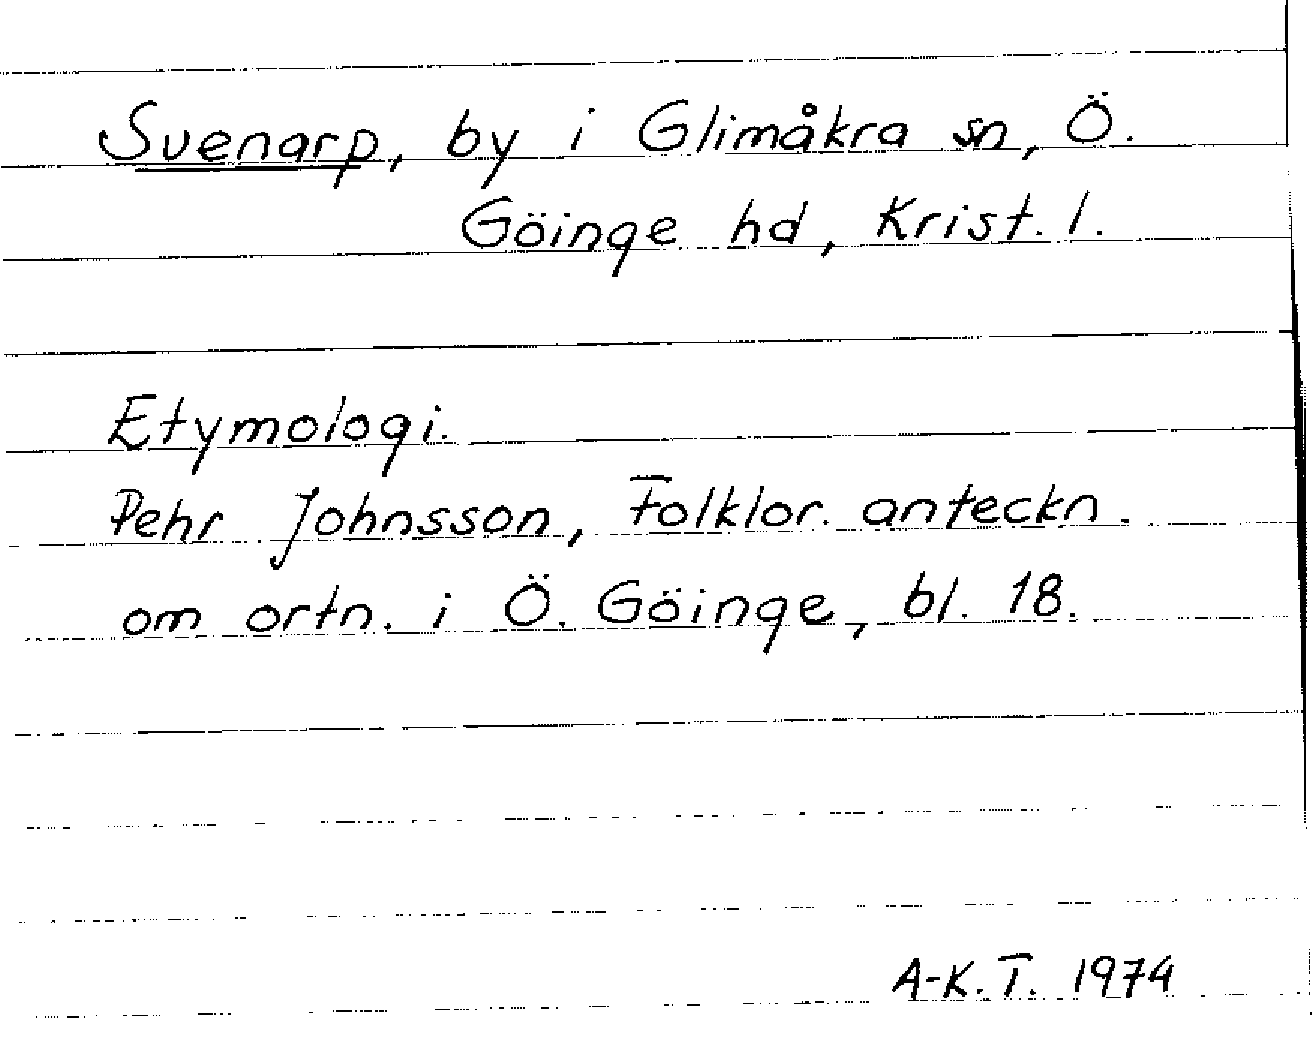 Svenarp, by i Glimåkra sn, Ö.
Göinge hd, Krist. l.
Etymologi.
Pehr Johnsson, Folklor. anteckn.
om ortn. i Ö. Göinge, bl. 18.
A-K. T. 1974